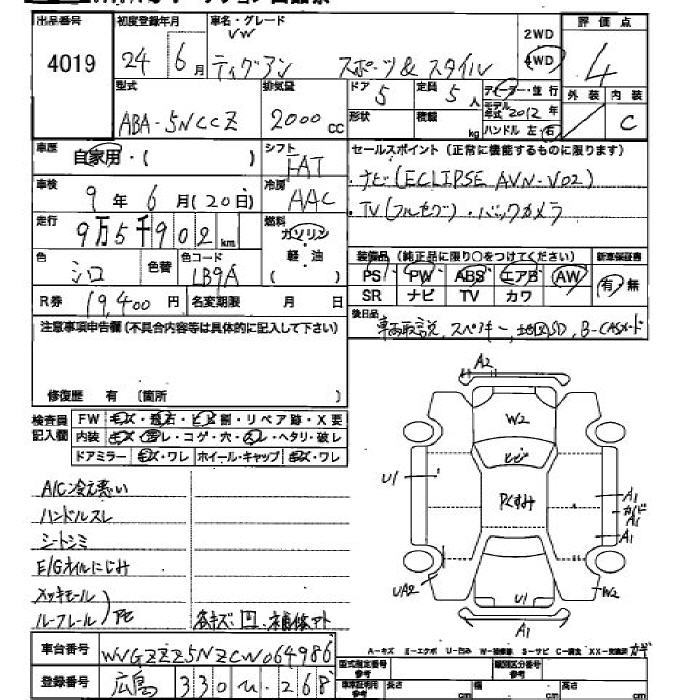 出品番号
4019
初度登録年月
24 6月
車名・グレード
VW
ティグアン スポーツ&スタイル
2WD
4WD
評価点
4
外装 内装
C
型式
ABA-5NCCZ
排気量
2000cc
ドア 5
定員 5人
形状
積載 kg
ディーラー・並行
モデル年式 2012年
ハンドル 左・右
車歴
自家用・( )
シフト
FAT
セールスポイント(正常に機能するものに限ります)
・ナビ(ECLIPSE AVN-V02)
・TV(フルセグ)・バックカメラ
車検
9年6月(20日)
冷房
AAC
走行
9万5千902km
燃料
ガソリン
軽・油
( )
色
シロ
色替
色コード
LB9A
装備品(純正品に限り○をつけてください)
PS PW ABS エアB AW
SR ナビ TV カワ
新車保証書
有・無
R券 19,400円
名変期限 月 日
後日品
車両取説,スペアキー,地図SD,B-CASカード
注意事項申告欄(不具合内容等は具体的に記入して下さい)
修復歴 有 〔箇所 〕
検査員記入欄
FW キズ・飛石・ヒビ・割・リペア跡・X要
内装 キズ・ヨゴレ・コゲ・穴・スレ・ヘタリ・破レ
ドアミラー キズ・ワレ ホイール・キャップ キズ・ワレ
A/C冷え悪い
ハンドルスレ
シートシミ
E/Gオイルにじみ
メッキモール
ルーフレール)PC
各キズ・凹・補修アト
A2
W2
ヒビ
Pくすみ
U1
A1
カド
A1
A1
UA2
W2
U1
A1
A-キズ E-エクボ U-凹み W-補修跡 S-サビ C-腐食 XX-交換済
車台番号
WVGZZZ5NZCW064986
登録番号
広島 330 ひ 268
型式指定番号 参考
類別区分番号 参考
車検証利用 参考
長さ cm
幅 cm
高さ cm